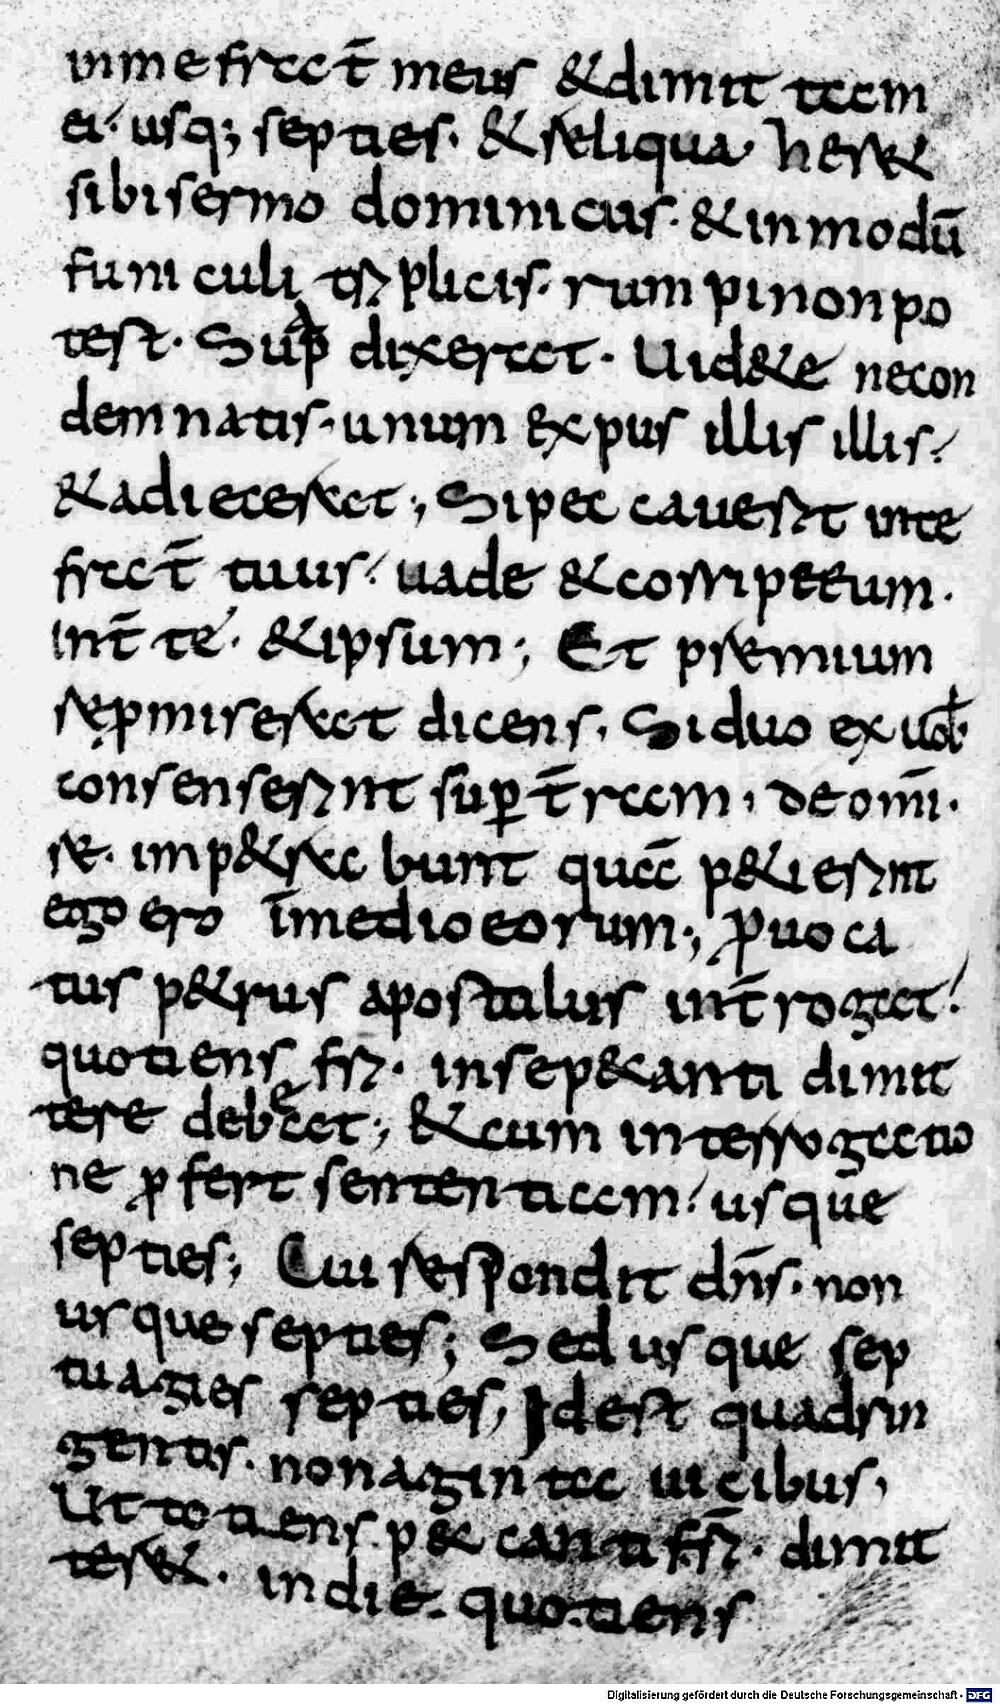 inme frat̄ meus &dimittam
ei· usq; septies· & reliqua· her&
sibi sermo dominicus· &inmodū
funiculi t͛plicis· rumpi non po
test· Sup̄ dixerat· Uid&e necon
demnatis· unum ex pusillis illis·
&adiecerat; Si peccauerit inte
frat̄ tuus· uade &corripeeum·
int̄ te· &ipsum; Et premium
sępmiserat dicens· Si duo ex uob
consenserint sup t̄ram· deomī·
re· imp&rabunt quecͫ p&ierint
ego ero īmedio eorum; puoca
tus p&rus apostulus int̄rogat·
quotiens fr͛i· insep&canti dimit
tere debeat; &cum interrogatio
ne pfert sententiam· usque
septies; Cui respondit dn̄s· non
usque septies; Sed usque sep
tuagies septies, Idest quadrin
gentis· nonaginta uicibus,
Ut totiens p&canti fr͛i· dimit
ter&· indie· quotiens
Digitalisierung gefördert durch die Deutsche Forschungsgemeinschaft - DFG